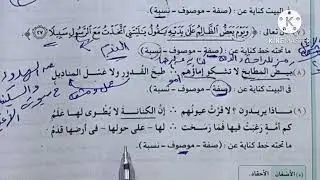 البيت كناية عن: (صفة - موصوف - نسبة).
تعالى: ﴿ويوم يعض الظالم على يديه يقول يليتني اتخذت مع الرسول سبيلا ٢٧﴾
ما تحته خط كناية عن: (صفة - موصوف - نسبة).
الندم
(٨) بيض المطابخ لا تشكو إماؤهم ∴ طبخ القدور ولا غسل المناديل
فى البيت كناية عن: (صفة - موصوف - نسبة).
(٩) ماذا يريدون ؟ لا قرت عيونهم ∴ إن الكنانة لا يطوى لها علم
كم أمة رغبت فيها فما رسخت ∴ لها - على حولها - فى أرضها قدم
ما تحته خط كناية عن: (صفة - موصوف - نسبة).
KINEMASTER